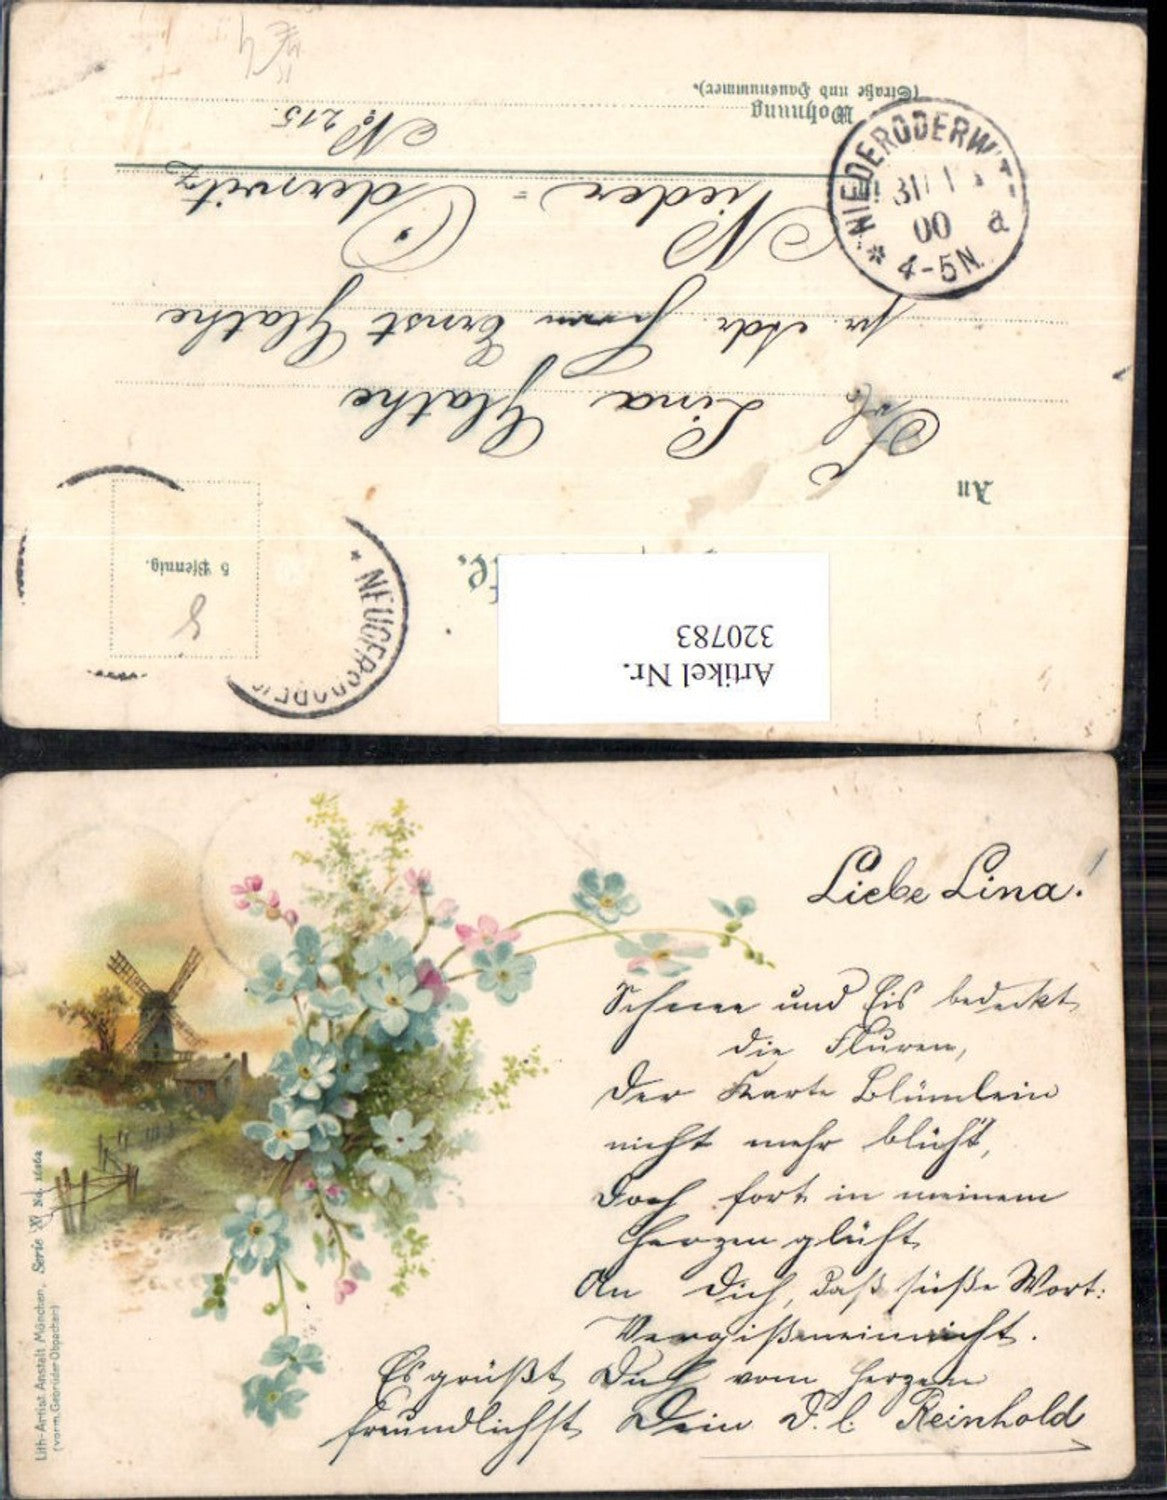 (Straße und Hausnummer).
Wohnung
No 215.
Nieder = Oderwitz
pr. Adr. Herrn Ernst Glathe
Frl. Lina Glathe
An
5 Pfennig.
Artikel Nr.
320783
NIEDERODERWITZ
31
00
a
* 4-5N.
* NEUGERSDORF
Liebe Lina!
Schnee und Eis bedeckt
die Fluren,
Der Karte Blümlein
nicht mehr blüht,
Doch fort in meinem
Herzen glüht
An Dich, das süße Wort:
Vergißmeinnicht.
Es grüßt Dich vom Herzen
freundlichst Dein D. l. Reinhold
Lith.-Artist. Anstalt München, Serie XI No. 16262
(vorm. Gebrüder Obpacher)